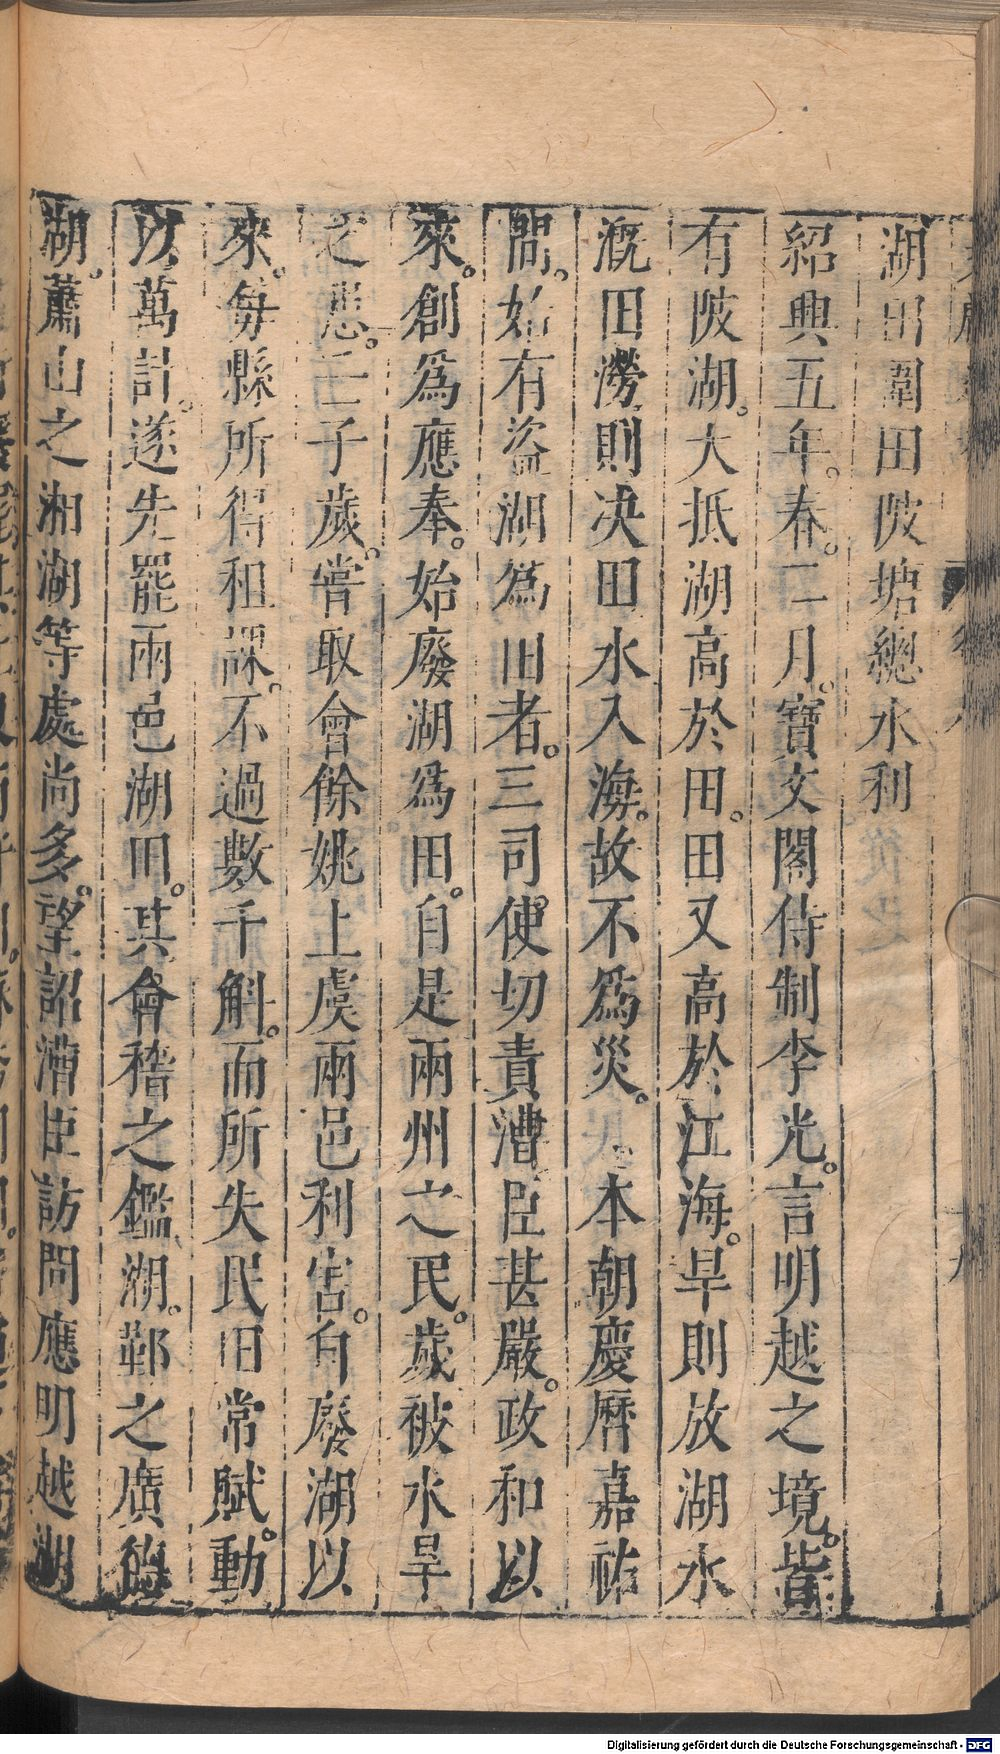 湖田圍田陂塘總水利
紹興五年。春。二月。寶文閣侍制李光。言明越之境。皆
有陂湖。大抵湖高於田。田又高於江海。旱則放湖水
溉田澇則决田水入海。故不爲災。本朝慶曆嘉祐
間。始有盜湖爲田者。三司使切責漕臣甚嚴。政和以
來。創爲應奉。始廢湖爲田。自是兩州之民。歲被水旱
之患。壬子歲。嘗取會餘姚上虞兩邑利害。自廢湖以
來。每縣所得租課。不過數千斛。而所失民田常賦。動
以萬計。遂先罷兩邑湖田。其會稽之鑑湖。鄞之廣德
湖。蕭山之湘湖等處尚多。望詔漕臣訪問應明越湖
Digitalisierung gefördert durch die Deutsche Forschungsgemeinschaft - DFG